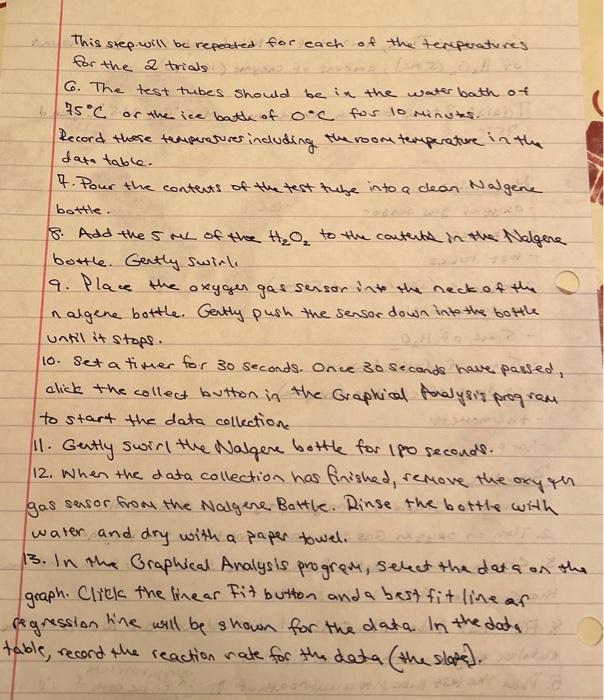 This step will be repeated for each of the temperatures
for the 2 trials
6. The test tubes should be in the water bath of
75°C or the ice bath of 0°C for 10 minutes.
Record these temperatures including the room temperature in the
data table.
7. Pour the contents of the test tube into a clean Nalgene
bottle.
8. Add the 5 mL of the H₂O₂ to the contents in the Nalgene
bottle. Gently swirl.
9. Place the oxygen gas sensor into the neck of the
nalgene bottle. Gently push the sensor down into the bottle
until it stops.
10. Set a timer for 30 seconds. Once 30 seconds have passed,
click the collect button in the Graphical Analysis program
to start the data collection.
11. Gently swirl the Nalgene bottle for 180 seconds.
12. When the data collection has finished, remove the oxygen
gas sensor from the Nalgene Bottle. Rinse the bottle with
water and dry with a paper towel.
13. In the Graphical Analysis program, select the data on the
graph. Click the linear fit button and a best fit line or
regression line will be shown for the data. In the data
table, record the reaction rate for the data (the slope).